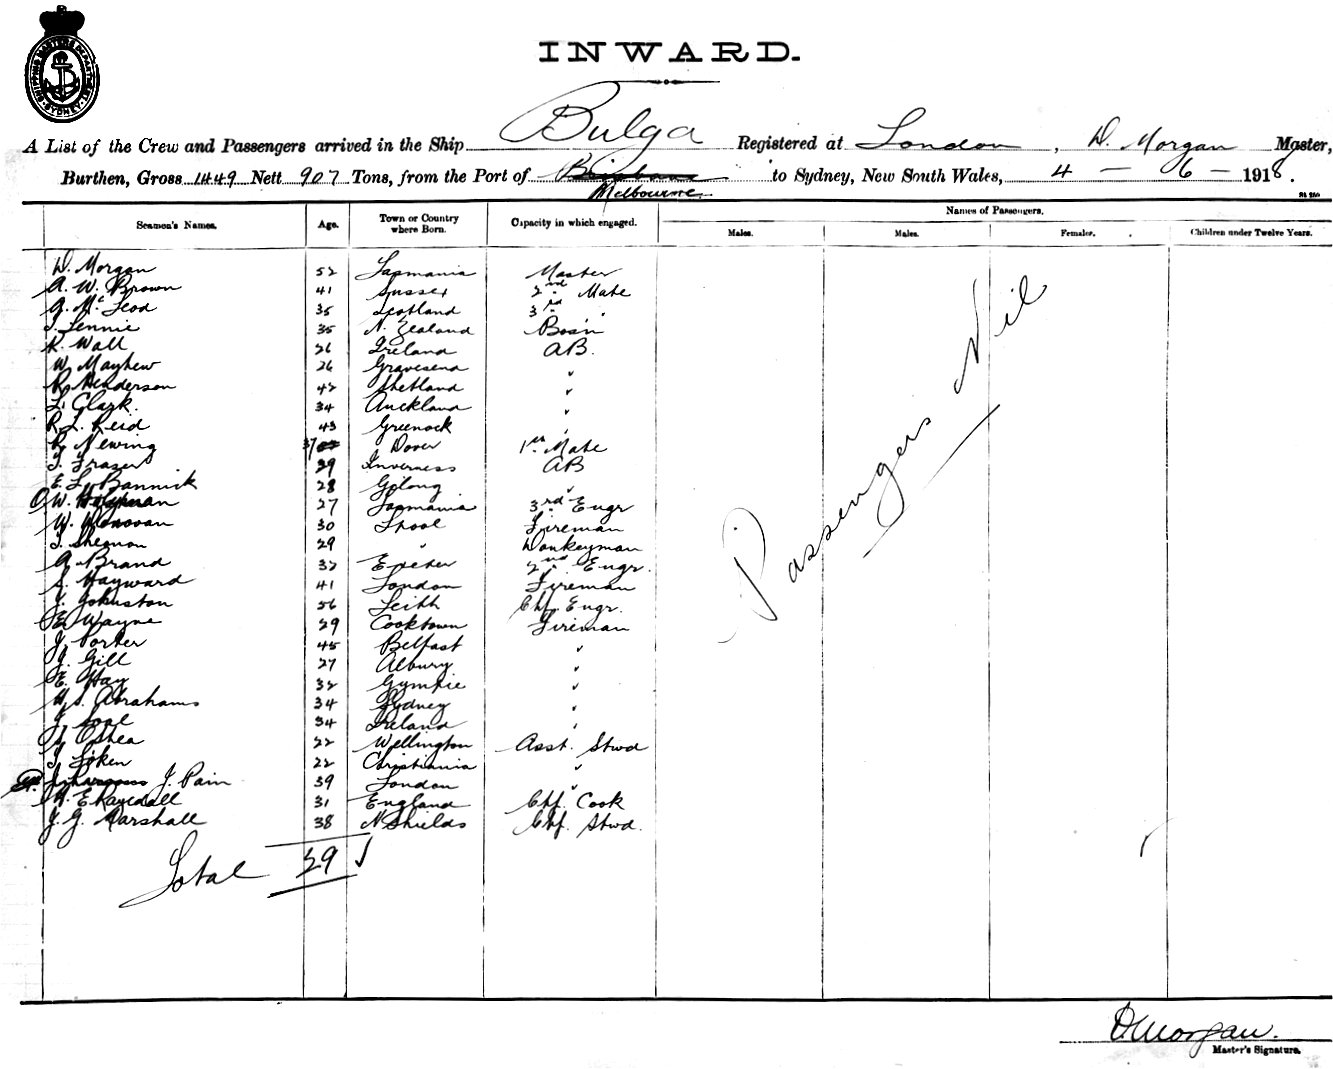 SHIPPING MASTERS DEPARTMENT SYDNEY
INWARD.
A List of the Crew and Passengers arrived in the Ship Bulga Registered at London, D. Morgan Master,
Burthen, Gross 1449 Nett 907 Tons, from the Port of Brisbane to Sydney, New South Wales, 4 - 6 - 1918.
Melbourne
Names of Passengers.
Seamen's Names. Age. Town or Country where Born. Capacity in which engaged. Males. Males. Females. Children under Twelve Years.
D. Morgan 52 Tasmania Master
A. W. Brown 41 Sussex 2nd Mate
G. McLeod 35 Scotland 3rd "
J. Lennie 35 N. Zealand Bosn
K. Wall 26 Ireland AB.
W. Mayhew 26 Gravesend "
R. Henderson 42 Shetland "
L. Clark. 34 Auckland "
R. L. Reid 43 Greenock "
R. Newing 37 Dover 1st Mate
T. Fraser 29 Inverness AB
E. L. Bannick 28 Gelong "
O. W. 27 Tasmania 3rd Engr
W. Donovan 30 Lpool Fireman
J. Shennon 29 " Donkeyman
A. Brand 32 Exeter 2nd Engr.
S. Hayward 41 London Fireman
J. Johnston 56 Leith Chf. Engr.
E. Wayne 29 Cooktown Fireman
J. Porter 45 Belfast "
J. Gill 27 Albury "
E. Hay 32 Gympie "
H. S. Abrahams 34 Sydney "
J. 34 Ireland "
J. O'Shea 22 Wellington Asst. Stwd
J. Loken 22 Christiania "
J. Pain 39 London "
H. E. Ramsdall 31 England Chf. Cook
J. G. Marshall 38 N Shields Chf. Stwd.
Total 29
Passengers Nil
D Morgan.
Master's Signature.